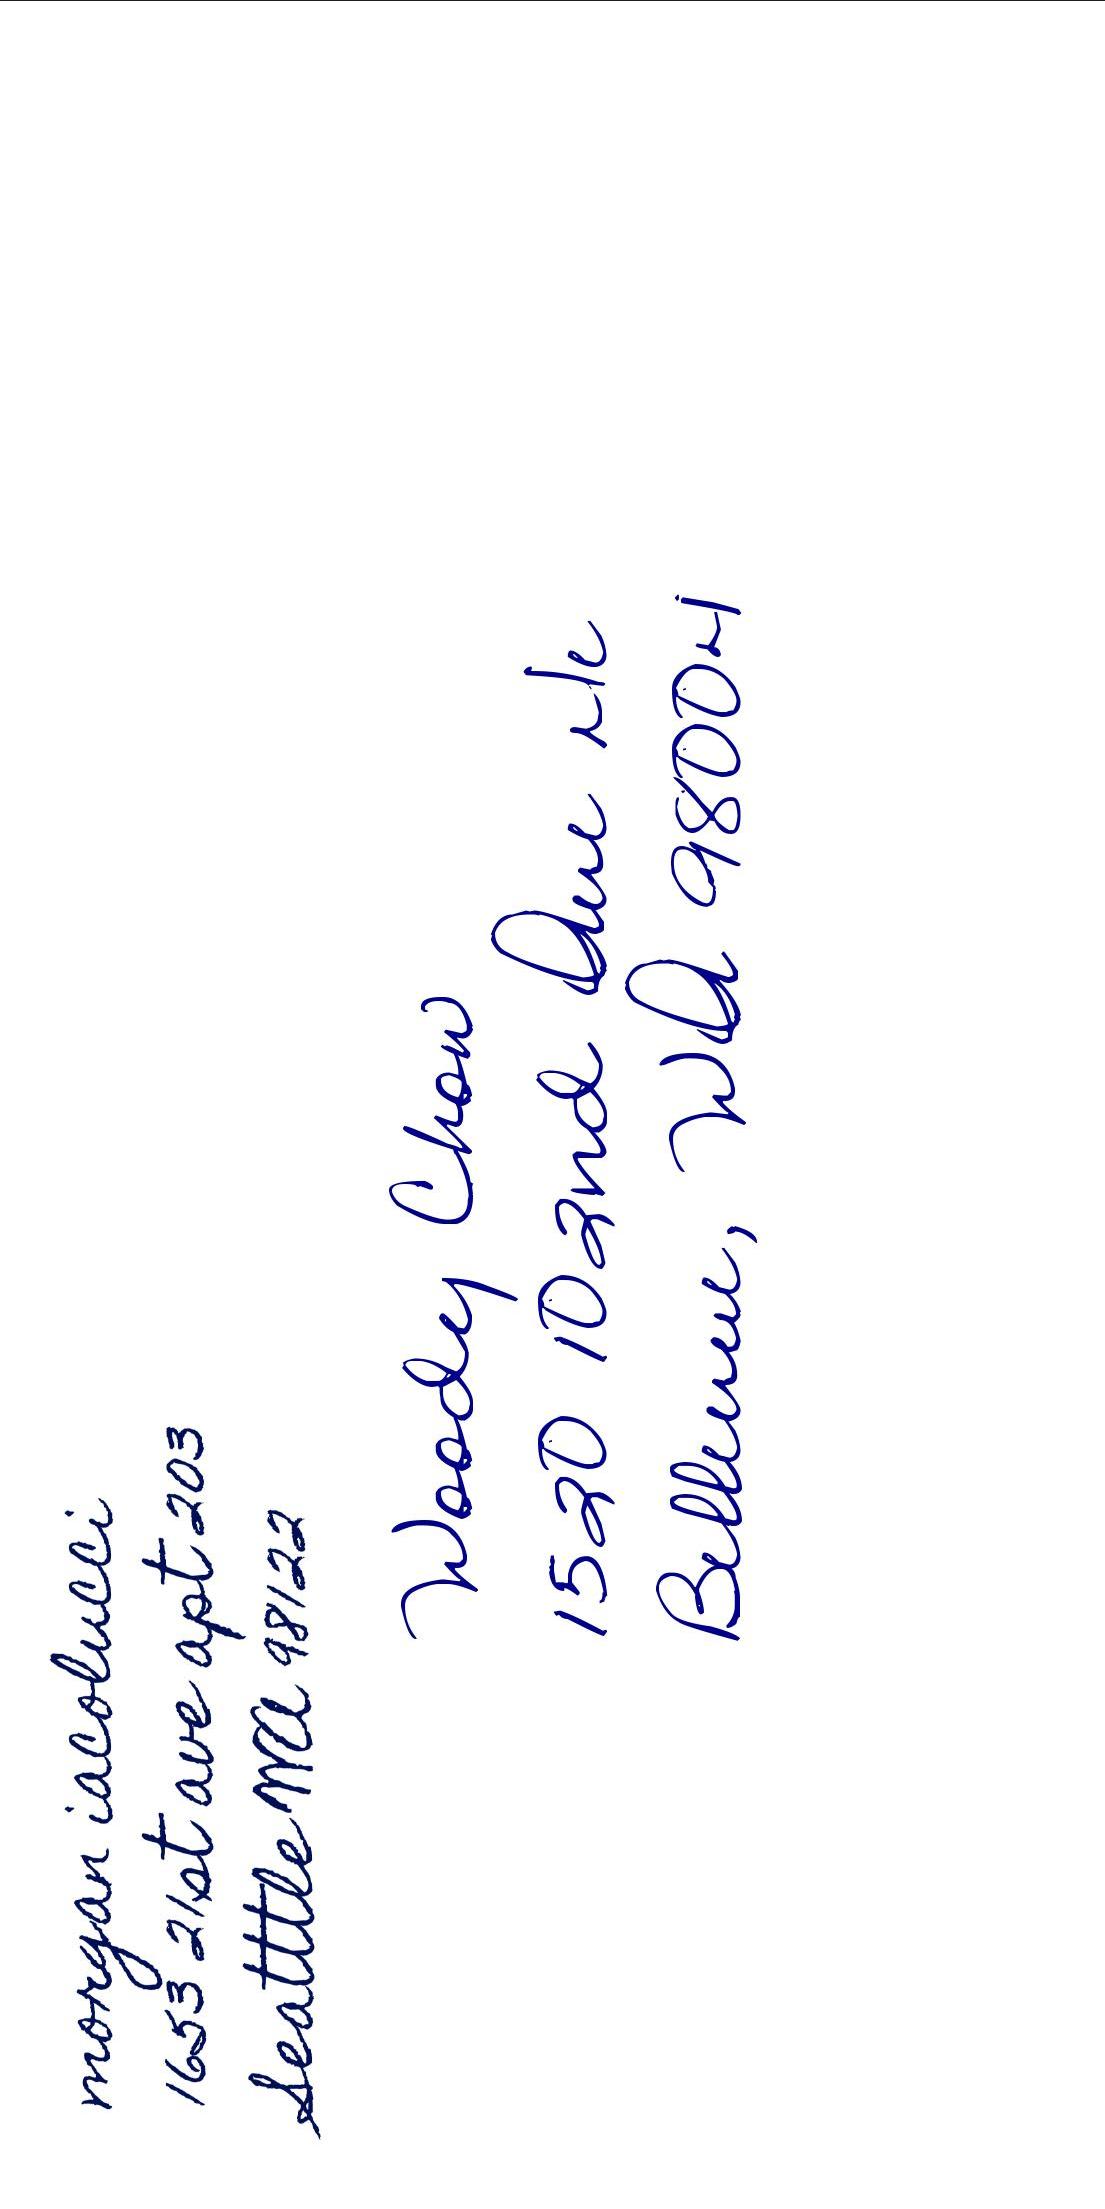 morgan iacolucci
1653 21st ave apt 203
Seattle WA 98122
Woody Chow
1520 102nd Ave Ne
Bellevue, WA 98004